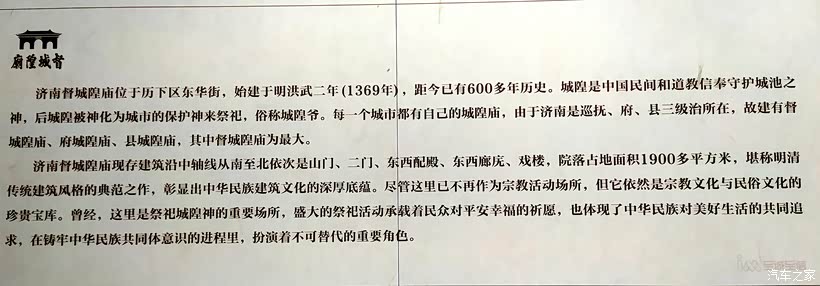 督城隍廟
济南督城隍庙位于历下区东华街，始建于明洪武二年(1369年)，距今已有600多年历史。城隍是中国民间和道教信奉守护城池之
神，后城隍被神化为城市的保护神来祭祀，俗称城隍爷。每一个城市都有自己的城隍庙，由于济南是巡抚、府、县三级治所在，故建有督
城隍庙、府城隍庙、县城隍庙，其中督城隍庙为最大。
济南督城隍庙现存建筑沿中轴线从南至北依次是山门、二门、东西配殿、东西廊庑、戏楼，院落占地面积1900多平方米，堪称明清
传统建筑风格的典范之作，彰显出中华民族建筑文化的深厚底蕴。尽管这里已不再作为宗教活动场所，但它依然是宗教文化与民俗文化的
珍贵宝库。曾经，这里是祭祀城隍神的重要场所，盛大的祭祀活动承载着民众对平安幸福的祈愿，也体现了中华民族对美好生活的共同追
求，在铸牢中华民族共同体意识的进程里，扮演着不可替代的重要角色。
汽车之家